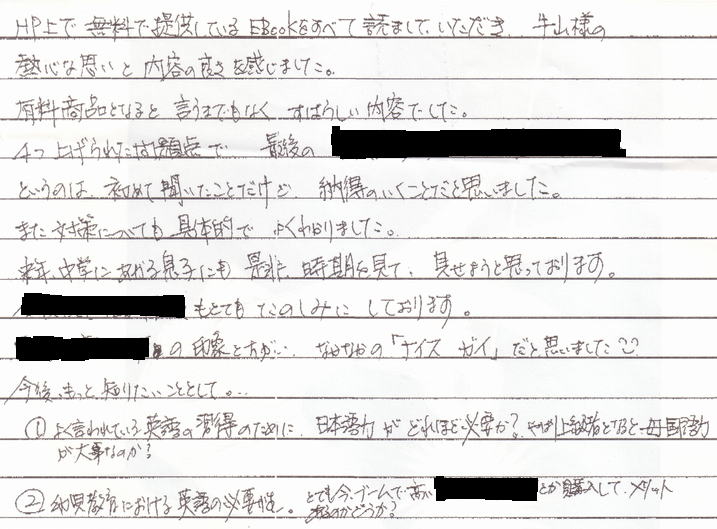 HP上で無料で提供しているEBookをすべて読まして、いただき、牛山様の
熱心な思いと内容の良さを感じました。
有料商品となると言うまでもなくすばらしい内容でした。
4つ上げられた問題点で 最後の
というのは、初めて聞いたことだけど、納得のいくことだと思いました。
また対策についても具体的でよくわかりました。
来年、中学にあがる息子にも是非、時期を見て、見せようと思っております。
もとてもたのしみにしております。
の印象と方が、なかなかの「ナイス ガイ」だと思いました
今後、もっと、知りたいこととして。…
① よく言われている英語の習得のために、日本語力がどれほど必要か? やはり上級者となると母国語力
が大事なのか?
② 幼児教育における英語の必要性。とても今、ブームで高い とか購入して、メリット
あるのかどうか?